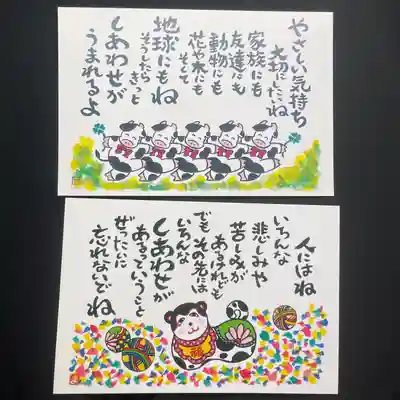 やさしい気持ち
大切にしたいね
家族にも
友達にも
動物にも
花や木にも
そして
地球にもね
そうしたら
きっと
しあわせが
うまれるよ
人にはね
いろんな
悲しみや
苦しみが
あるけれども
でもその先には
いろんな
しあわせが
あるっていうこと
ぜったいに
忘れないでね
福